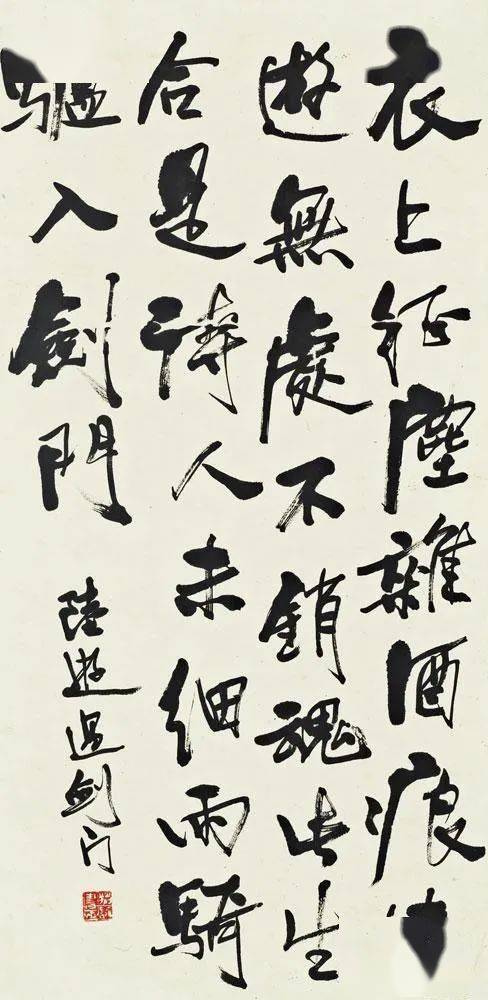 衣上征塵雜酒痕
遊無處不銷魂此生
合是詩人未細雨騎
驢入劍門
陸游過剑门